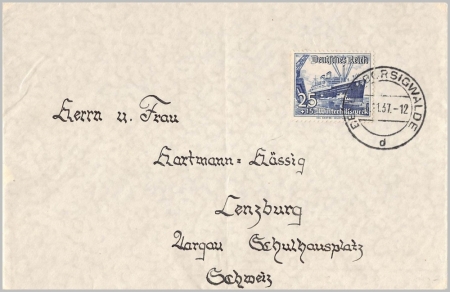 Deutsches Reich
25
+15 Winterhilfswerk
BORSIGWALDE
11.37.-12
d
Herrn u. Frau
Hartmann-Hässig
Lenzburg
Aargau Schulhausplatz
Schweiz